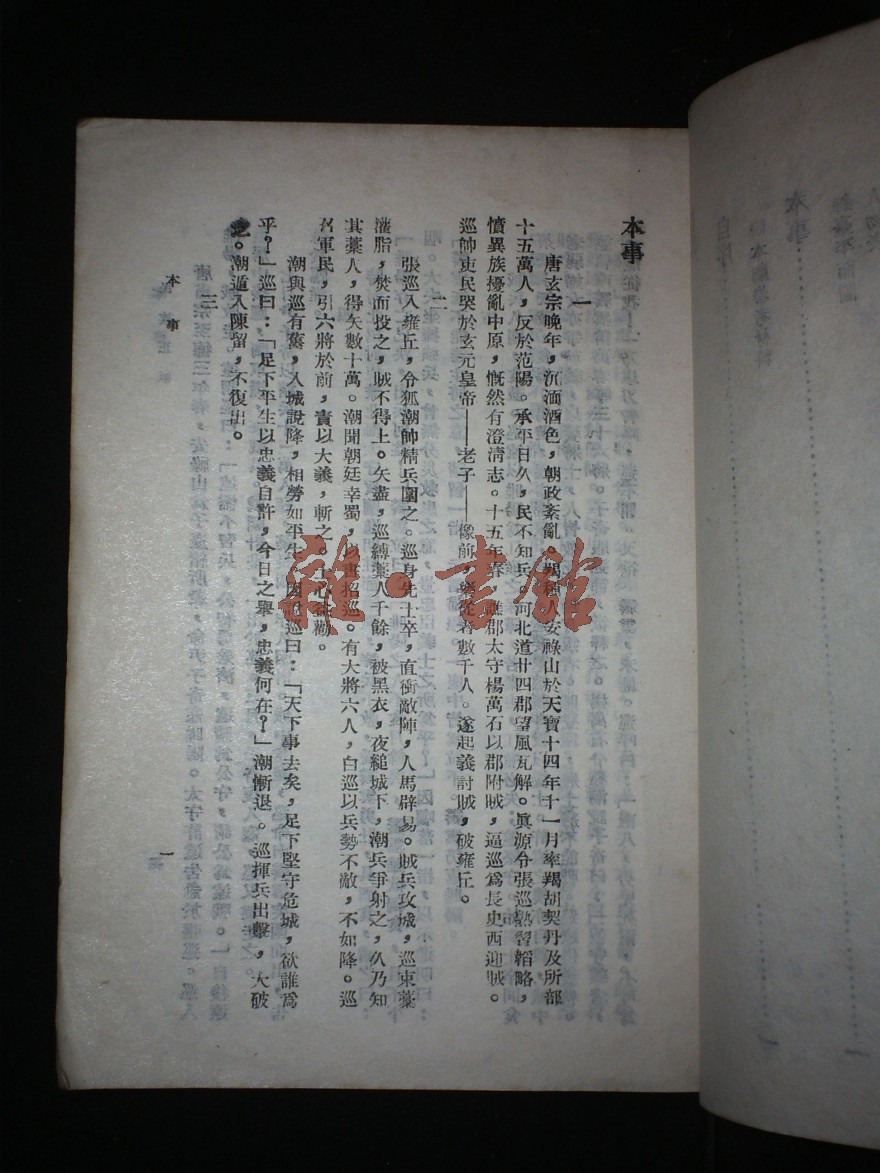 本事
一
唐玄宗晚年，沉湎酒色，朝政紊亂。羯種人安祿山於天寶十四年十一月率羯胡契丹及所部
十五萬人，反於范陽。承平日久，民不知兵。河北道廿四郡望風瓦解。眞源令張巡熟習韜略，
憤異族擾亂中原，慨然有澄清志。十五年春，譙郡太守楊萬石以郡附賊，逼巡爲長史西迎賊。
巡帥吏民哭於玄元皇帝——老子——像前，樂從者數千人。遂起義討賊，破雍丘。
二
張巡入雍丘，令狐潮帥精兵圍之。巡身先士卒，直衝敵陣，人馬辟易。賊兵攻城，巡束藁
灌脂，焚而投之，賊不得上。矢盡，巡縛藁人千餘，被黑衣，夜縋城下，潮兵爭射之，久乃知
其藁人，得矢數十萬。潮聞朝廷幸蜀，以書招巡。有大將六人，白巡以兵勢不敵，不如降。巡
召軍民，引六將於前，責以大義，斬之。士心益勸。
潮與巡有舊，入城說降，相勞如平生，因說巡曰：「天下事去矣，足下堅守危城，欲誰爲
乎？」巡曰：「足下平生以忠義自許，今日之舉，忠義何在？」潮慚退。巡揮兵出擊，大破
之。潮遁入陳留，不復出。
三
本事
一
雜·書館
本事